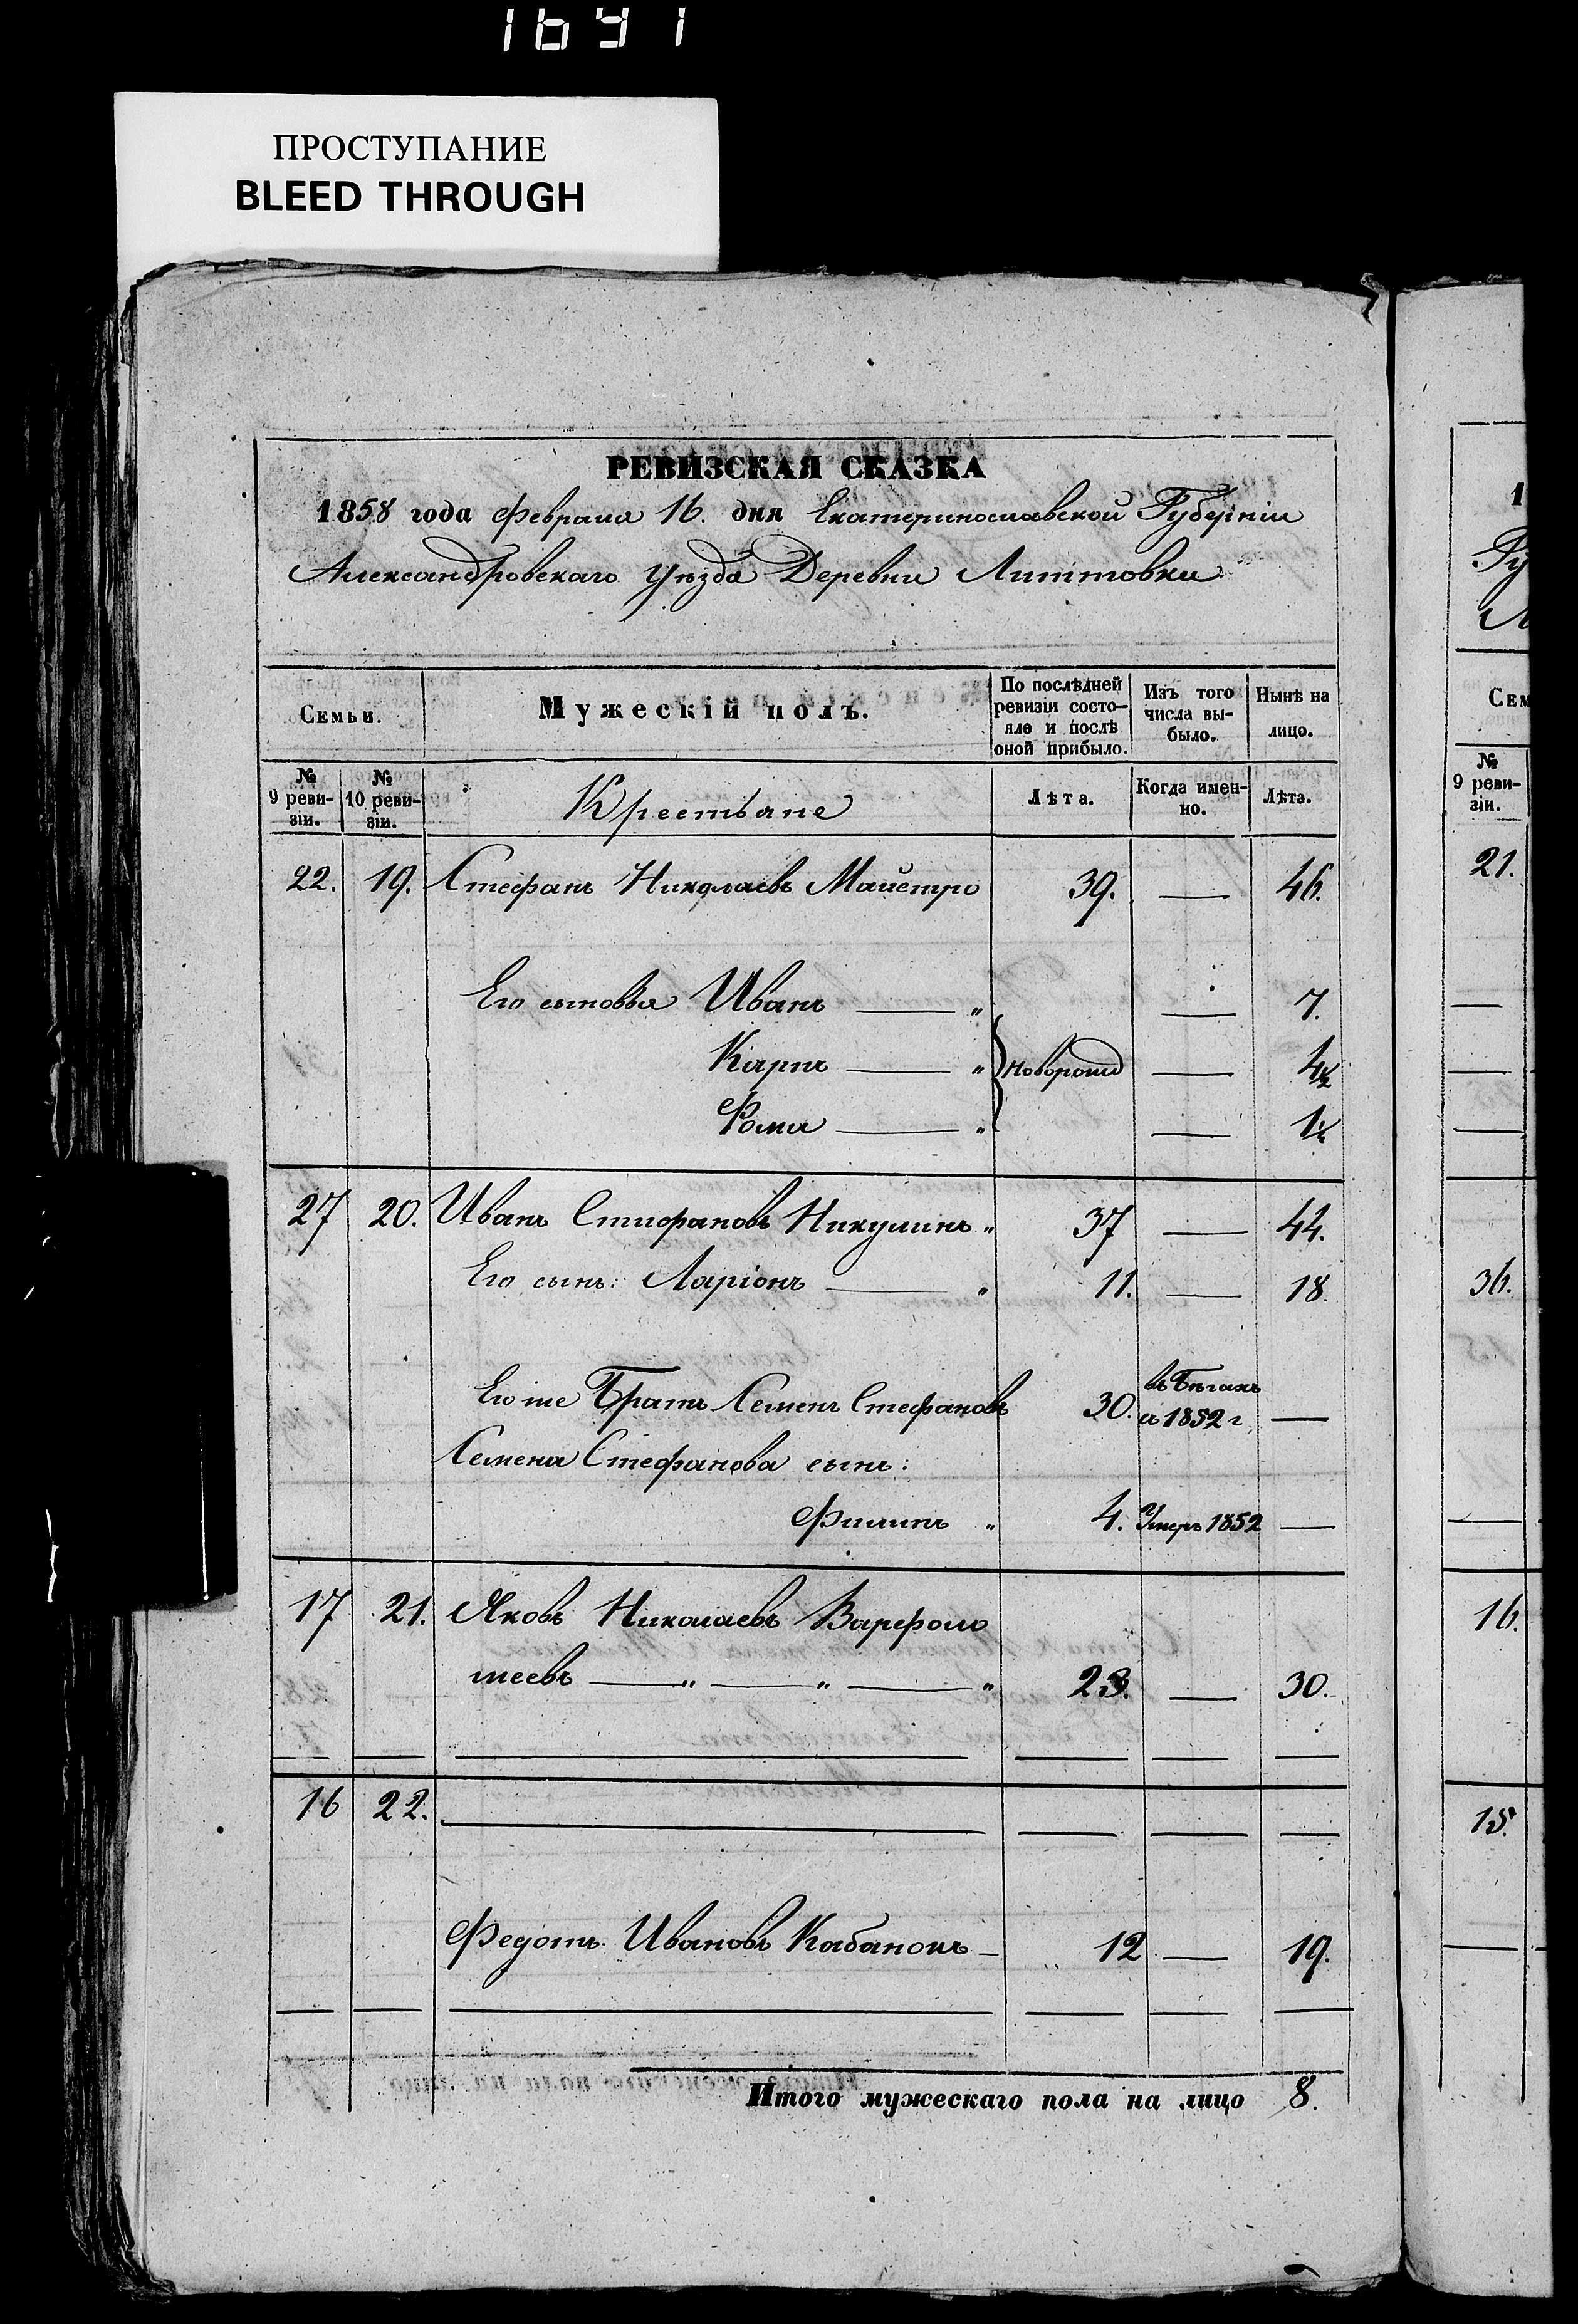 1691
ПРОСТУПАНИЕ
BLEED THROUGH
РЕВИЗСКАЯ СКАЗКА
1858 года Февраля 16. дня Екатеринославской Губерніи
Александровскаго Уѣзда Деревни Литтовки
Семьи. Мужескій полъ. По послѣдней ревизіи состояло и послѣ оной прибыло. Изъ того числа выбыло. Нынѣ на лицо.
№ 9 ревизіи. № 10 ревизіи. Крестьяне Лѣта. Когда именно. Лѣта.
22. 19. Стефанъ Николаевъ Майстро 39. — 46.
Его сыновья Иванъ — „ — 7.
Карпъ — „ Новорожд — 4½
Фома — „ — 1½
27 20. Иванъ Стефановъ Никулинъ „ 37 — 44.
Его сынъ: Ларіонъ — „ 11. — 18.
Его же Братъ Семенъ Стефановъ 30. въ Бѣгахъ съ 1852 г. —
Семена Стефанова сынъ:
Филипъ „ 4. Умеръ 1852 —
17 21. Яковъ Николаевъ Варфоло
меевъ — „ — „ — „ 23. — 30.
16 22. — — — —
Федотъ Ивановъ Кабанокъ — 12 — 19.
Итого мужескаго пола на лицо 8.
1
Гу
Л
Сем
№
9 реви-
зіи.
21.
36.
16.
15.